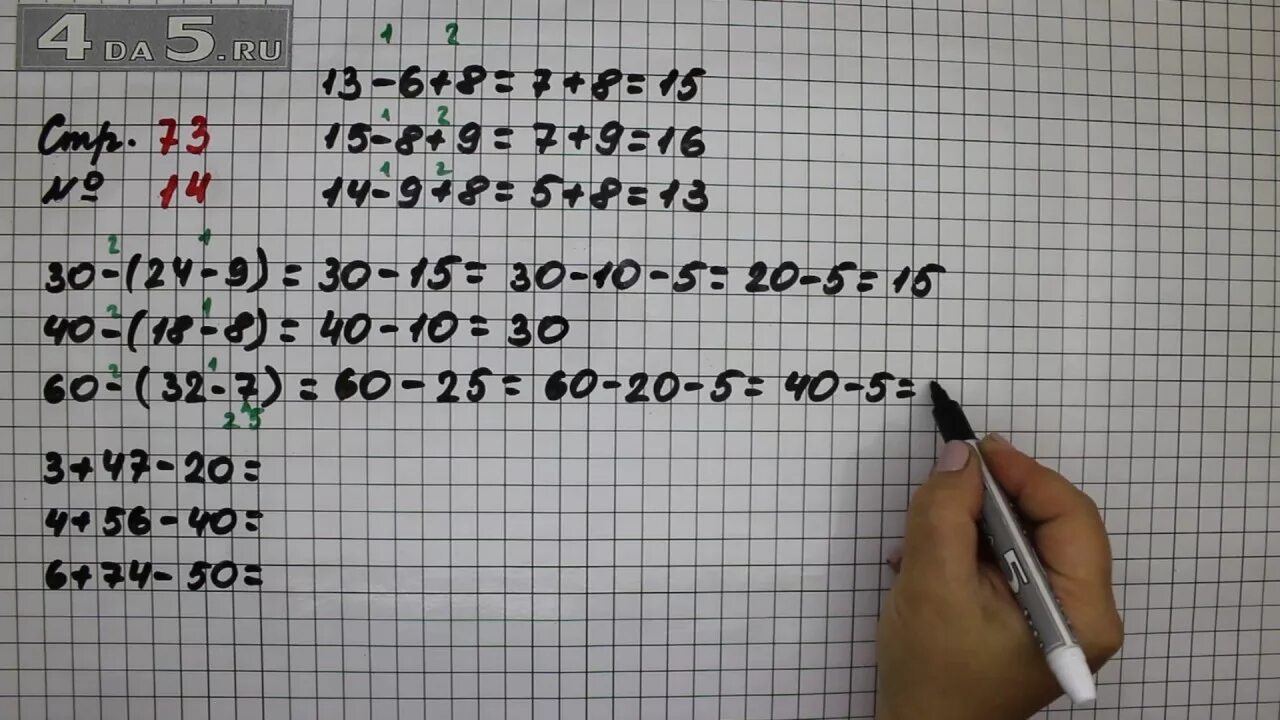 4DA5.RU
1 2
13-6+8=7+8=15
Стр. 73
1 2
15-8+9=7+9=16
№ 14
1 2
14-9+8=5+8=13
2 1
30-(24-9)=30-15=30-10-5=20-5=15
2 1
40-(18-8)=40-10=30
2 1
60-(32-7)=60-25=60-20-5=40-5=
2 5
3+47-20=
4+56-40=
6+74-50=
5